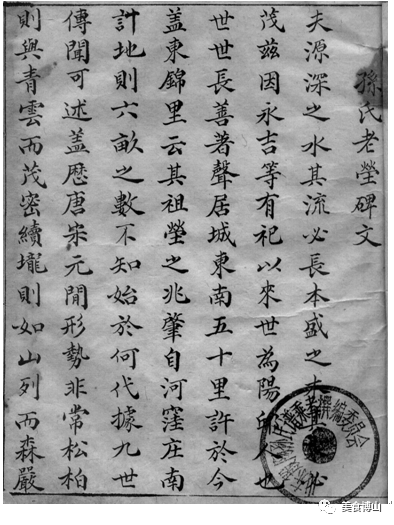 孫氏老塋碑文
夫源深之水其流必長本盛之必
茂茲因永吉等有祀以來世為陽邱人也
世世長善著聲居城東南五十里許於今
盖東錦里云其祖塋之兆肇自河窪庄南
計地則六畝之數不知始於何代據九世
傳聞可述盖歷唐宋元間形勢非常松柏
則與青雲而茂密續壠則如山列而森嚴
編委員会
美食博山